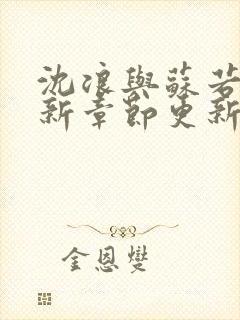 沈浪與蘇若
新章節更新
金恩燮